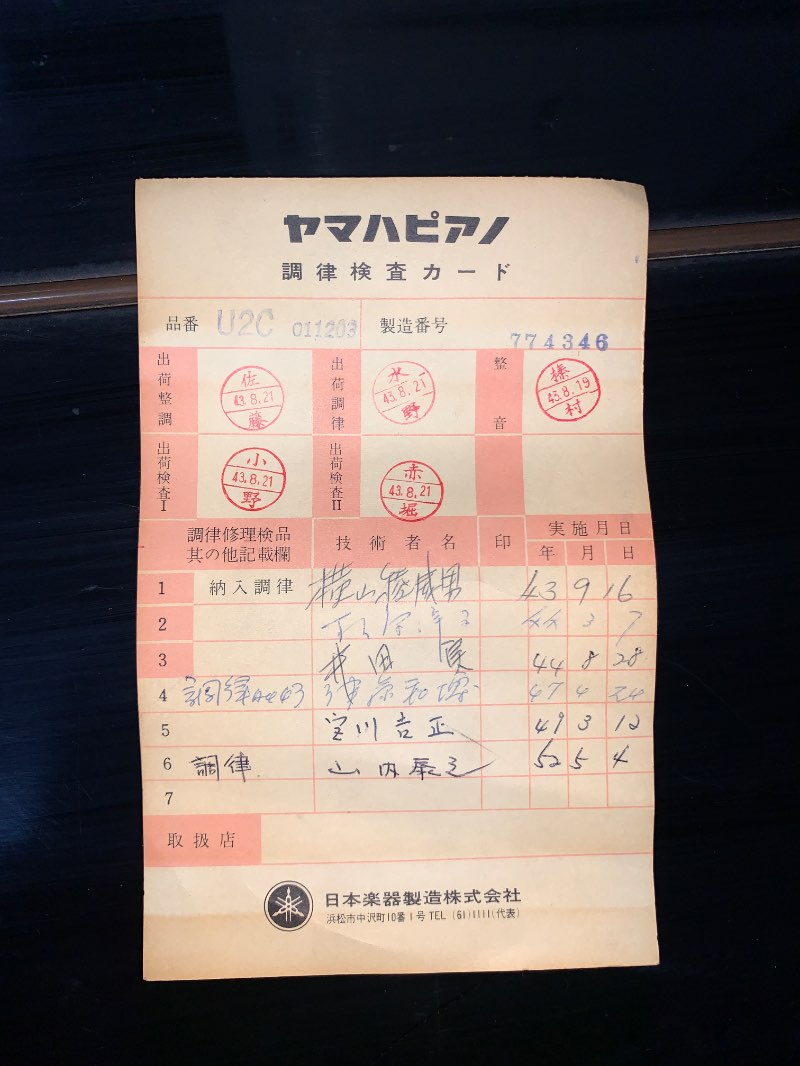 ヤマハピアノ
調律検査カード
品番 U2C 011203 製造番号 774346
出荷整調 佐藤 43.8.21 出荷調律 水野 43.8.21 整音 榛村 43.8.19
出荷検査I 小野 43.8.21 出荷検査II 赤堀 43.8.21
調律修理検品其の他記載欄 技術者名 印 実施月日
年 月 日
1 納入調律 43 9 16
2 44 3 7
3 井田 44 8 28
4 47 4 24
5 宝川吉正 49 3 12
6 調律 山内 52 5 4
7
取扱店
日本楽器製造株式会社
浜松市中沢町10番1号 TEL (61)1111(代表)